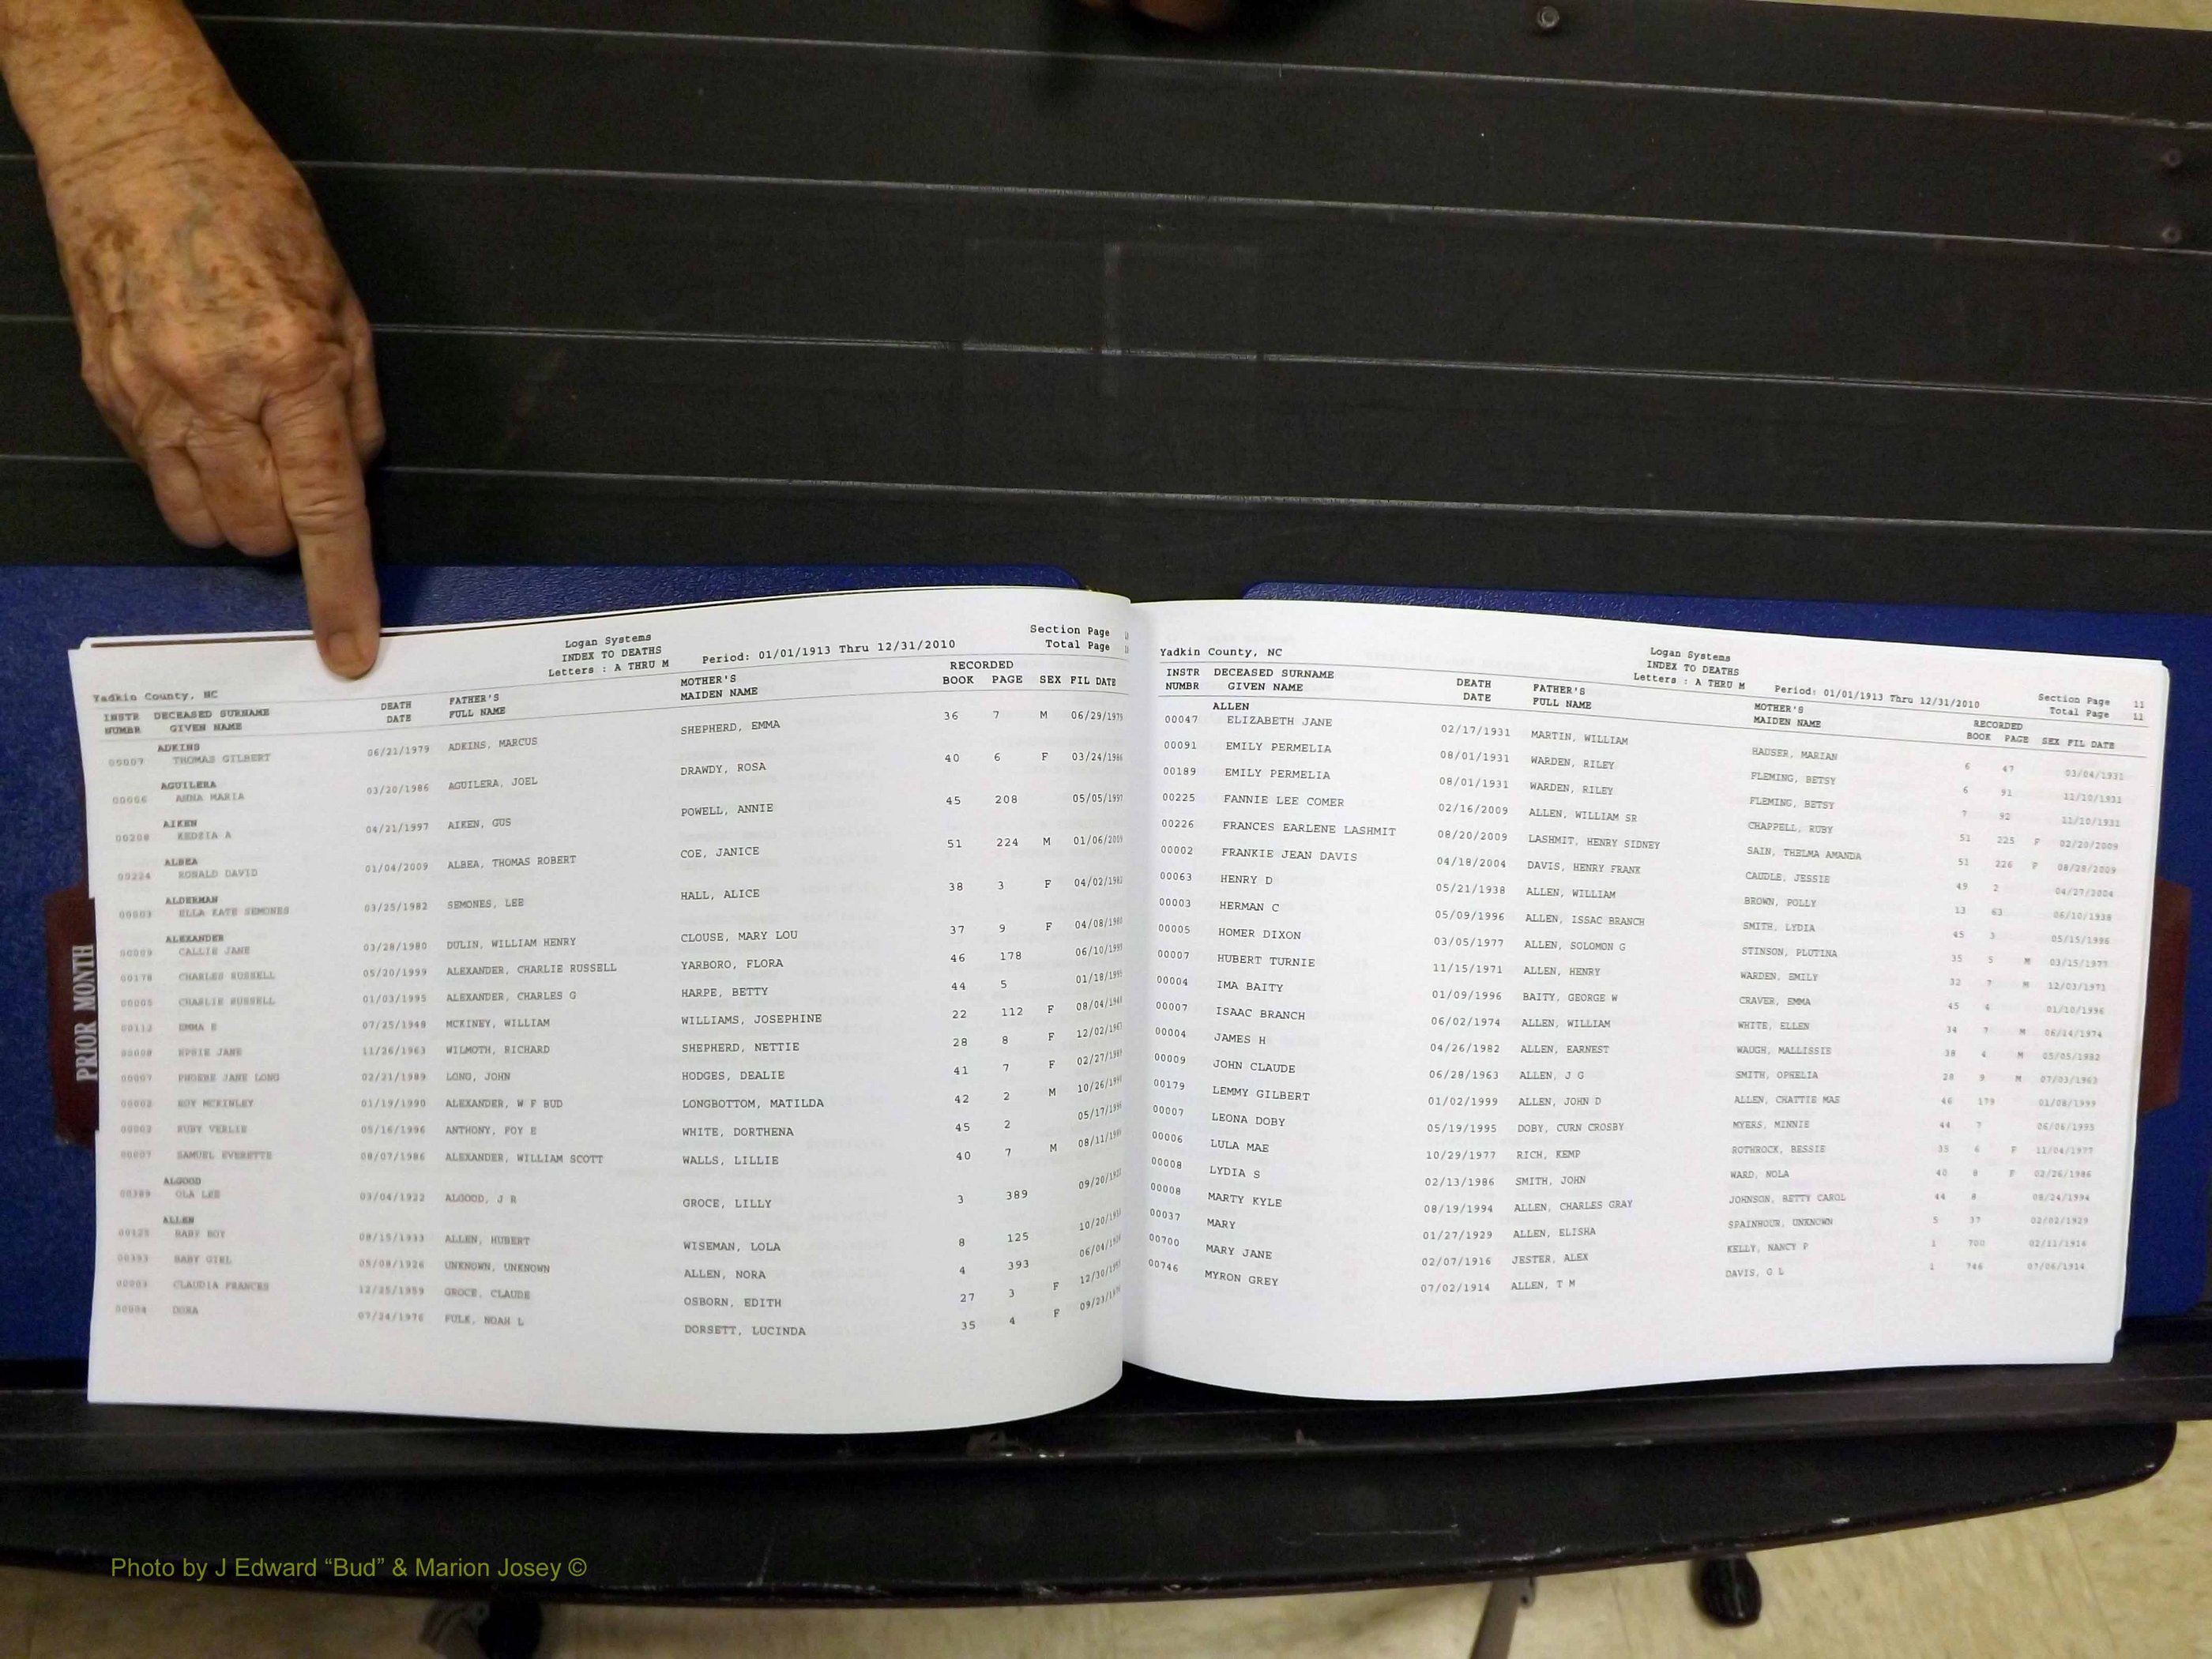 PRIOR MONTH
Logan Systems
INDEX TO DEATHS
Letters : A THRU M Period: 01/01/1913 Thru 12/31/2010
Section Page
Total Page
Yadkin County, NC
INSTR DECEASED SURNAME DEATH FATHER'S MOTHER'S RECORDED
NUMBR GIVEN NAME DATE FULL NAME MAIDEN NAME BOOK PAGE SEX FIL DATE
ADKINS
00007 THOMAS GILBERT 06/21/1979 ADKINS, MARCUS SHEPHERD, EMMA 36 7 M 06/29/1979
AGUILERA
00006 ANNA MARIA 03/20/1986 AGUILERA, JOEL DRAWDY, ROSA 40 6 F 03/24/1986
AIKEN
00208 KEDZIA A 04/21/1997 AIKEN, GUS POWELL, ANNIE 45 208 05/05/1997
ALBEA
00224 RONALD DAVID 01/04/2009 ALBEA, THOMAS ROBERT COE, JANICE 51 224 M 01/06/2009
ALDERMAN
00003 ELLA KATE SEMONES 03/25/1982 SEMONES, LEE HALL, ALICE 38 3 F 04/02/1982
ALEXANDER
00009 CALLIE JANE 03/28/1980 DULIN, WILLIAM HENRY CLOUSE, MARY LOU 37 9 F 04/08/1980
00178 CHARLES RUSSELL 05/20/1999 ALEXANDER, CHARLIE RUSSELL YARBORO, FLORA 46 178 06/10/1999
00005 CHARLIE RUSSELL 01/03/1995 ALEXANDER, CHARLES G HARPE, BETTY 44 5 01/18/1995
00112 EMMA E 07/25/1948 MCKINEY, WILLIAM WILLIAMS, JOSEPHINE 22 112 F 08/04/1948
00008 EPSIE JANE 11/26/1963 WILMOTH, RICHARD SHEPHERD, NETTIE 28 8 F 12/02/1963
00007 PHOEBE JANE LONG 02/21/1989 LONG, JOHN HODGES, DEALIE 41 7 F 02/27/1989
00002 ROY MCKINLEY 01/19/1990 ALEXANDER, W F BUD LONGBOTTOM, MATILDA 42 2 M 10/26/1990
00002 RUBY VERLIE 05/16/1996 ANTHONY, FOY E WHITE, DORTHENA 45 2 05/17/1996
00007 SAMUEL EVERETTE 08/07/1986 ALEXANDER, WILLIAM SCOTT WALLS, LILLIE 40 7 M 08/11/1986
ALGOOD
00389 OLA LEE 03/04/1922 ALGOOD, J R GROCE, LILLY 3 389
ALLEN
00125 BABY BOY 08/15/1933 ALLEN, HUBERT WISEMAN, LOLA 8 125
00393 BABY GIRL 05/08/1926 UNKNOWN, UNKNOWN ALLEN, NORA 4 393
00003 CLAUDIA FRANCES 12/25/1959 GROCE, CLAUDE OSBORN, EDITH 27 3 F
00004 DORA FULK, NOAH L DORSETT, LUCINDA 35 4 F
Logan Systems
INDEX TO DEATHS
Letters : A THRU M Period: 01/01/1913 Thru 12/31/2010
Section Page 11
Total Page 11
Yadkin County, NC
INSTR DECEASED SURNAME DEATH FATHER'S MOTHER'S RECORDED
NUMBR GIVEN NAME DATE FULL NAME MAIDEN NAME BOOK PAGE SEX FIL DATE
ALLEN
00047 ELIZABETH JANE 02/17/1931 MARTIN, WILLIAM HAUSER, MARIAN 6 47 03/04/1931
00091 EMILY PERMELIA 08/01/1931 WARDEN, RILEY FLEMING, BETSY 6 91 11/10/1931
00189 EMILY PERMELIA 08/01/1931 WARDEN, RILEY FLEMING, BETSY 7 92 11/10/1931
00225 FANNIE LEE COMER 02/16/2009 ALLEN, WILLIAM SR CHAPPELL, RUBY 51 225 F 02/20/2009
00226 FRANCES EARLENE LASHMIT 08/20/2009 LASHMIT, HENRY SIDNEY SAIN, THELMA AMANDA 51 226 F 08/28/2009
00002 FRANKIE JEAN DAVIS 04/18/2004 DAVIS, HENRY FRANK CAUDLE, JESSIE 49 2 04/27/2004
00063 HENRY D 05/21/1938 ALLEN, WILLIAM BROWN, POLLY 13 63 06/10/1938
00003 HERMAN C 05/09/1996 ALLEN, ISSAC BRANCH SMITH, LYDIA 45 3 05/15/1996
00005 HOMER DIXON 03/05/1977 ALLEN, SOLOMON G STINSON, PLUTINA 35 5 M 03/15/1977
00007 HUBERT TURNIE 11/15/1971 ALLEN, HENRY WARDEN, EMILY 32 7 M 12/03/1971
00004 IMA BAITY 01/09/1996 BAITY, GEORGE W CRAVER, EMMA 45 4 01/10/1996
00007 ISAAC BRANCH 06/02/1974 ALLEN, WILLIAM WHITE, ELLEN 34 7 M 06/14/1974
00004 JAMES H 04/26/1982 ALLEN, EARNEST WAUGH, MALLISSIE 38 4 M 05/05/1982
00009 JOHN CLAUDE 06/28/1963 ALLEN, J G SMITH, OPHELIA 28 9 M 07/03/1963
00179 LEMMY GILBERT 01/02/1999 ALLEN, JOHN D ALLEN, CHATTIE MAE 46 179 01/08/1999
00007 LEONA DOBY 05/19/1995 DOBY, CURN CROSBY MYERS, MINNIE 44 7 06/06/1995
00006 LULA MAE 10/29/1977 RICH, KEMP ROTHROCK, BESSIE 35 6 F 11/04/1977
00008 LYDIA S 02/13/1986 SMITH, JOHN WARD, NOLA 40 8 F 02/26/1986
00008 MARTY KYLE 08/19/1994 ALLEN, CHARLES GRAY JOHNSON, BETTY CAROL 44 8 08/24/1994
00037 MARY 01/27/1929 ALLEN, ELISHA SPAINHOUR, UNKNOWN 5 37 02/02/1929
00700 MARY JANE 02/07/1916 JESTER, ALEX KELLY, NANCY P 1 700 02/11/1916
00746 MYRON GREY 07/02/1914 ALLEN, T M DAVIS, G L 1 746 07/06/1914
Photo by J Edward “Bud” & Marion Josey ©